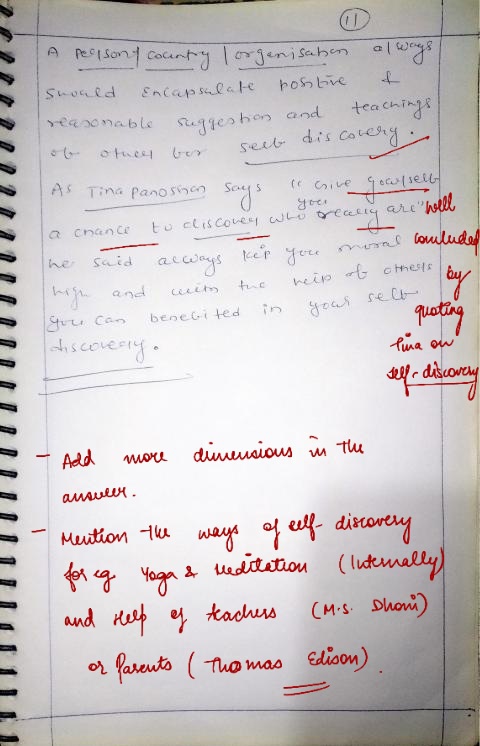 11
A person / country / organisation always
should encapsulate positive &
reasonable suggestion and teachings
of others for self discovery.
As Tina Panoshan says "Give yourself
a chance to discover who you really are"
he said always kip you moral
high and with the help of others
you can benefited in your self
discovery.
well
concluded
by
quoting
Tina on
self-discovery
- Add more dimensions in the
answer.
- Mention the ways of self-discovery
for eg Yoga & Meditation (Internally)
and Help of teachers (M.S. Dhoni)
or Parents (Thomas Edison).